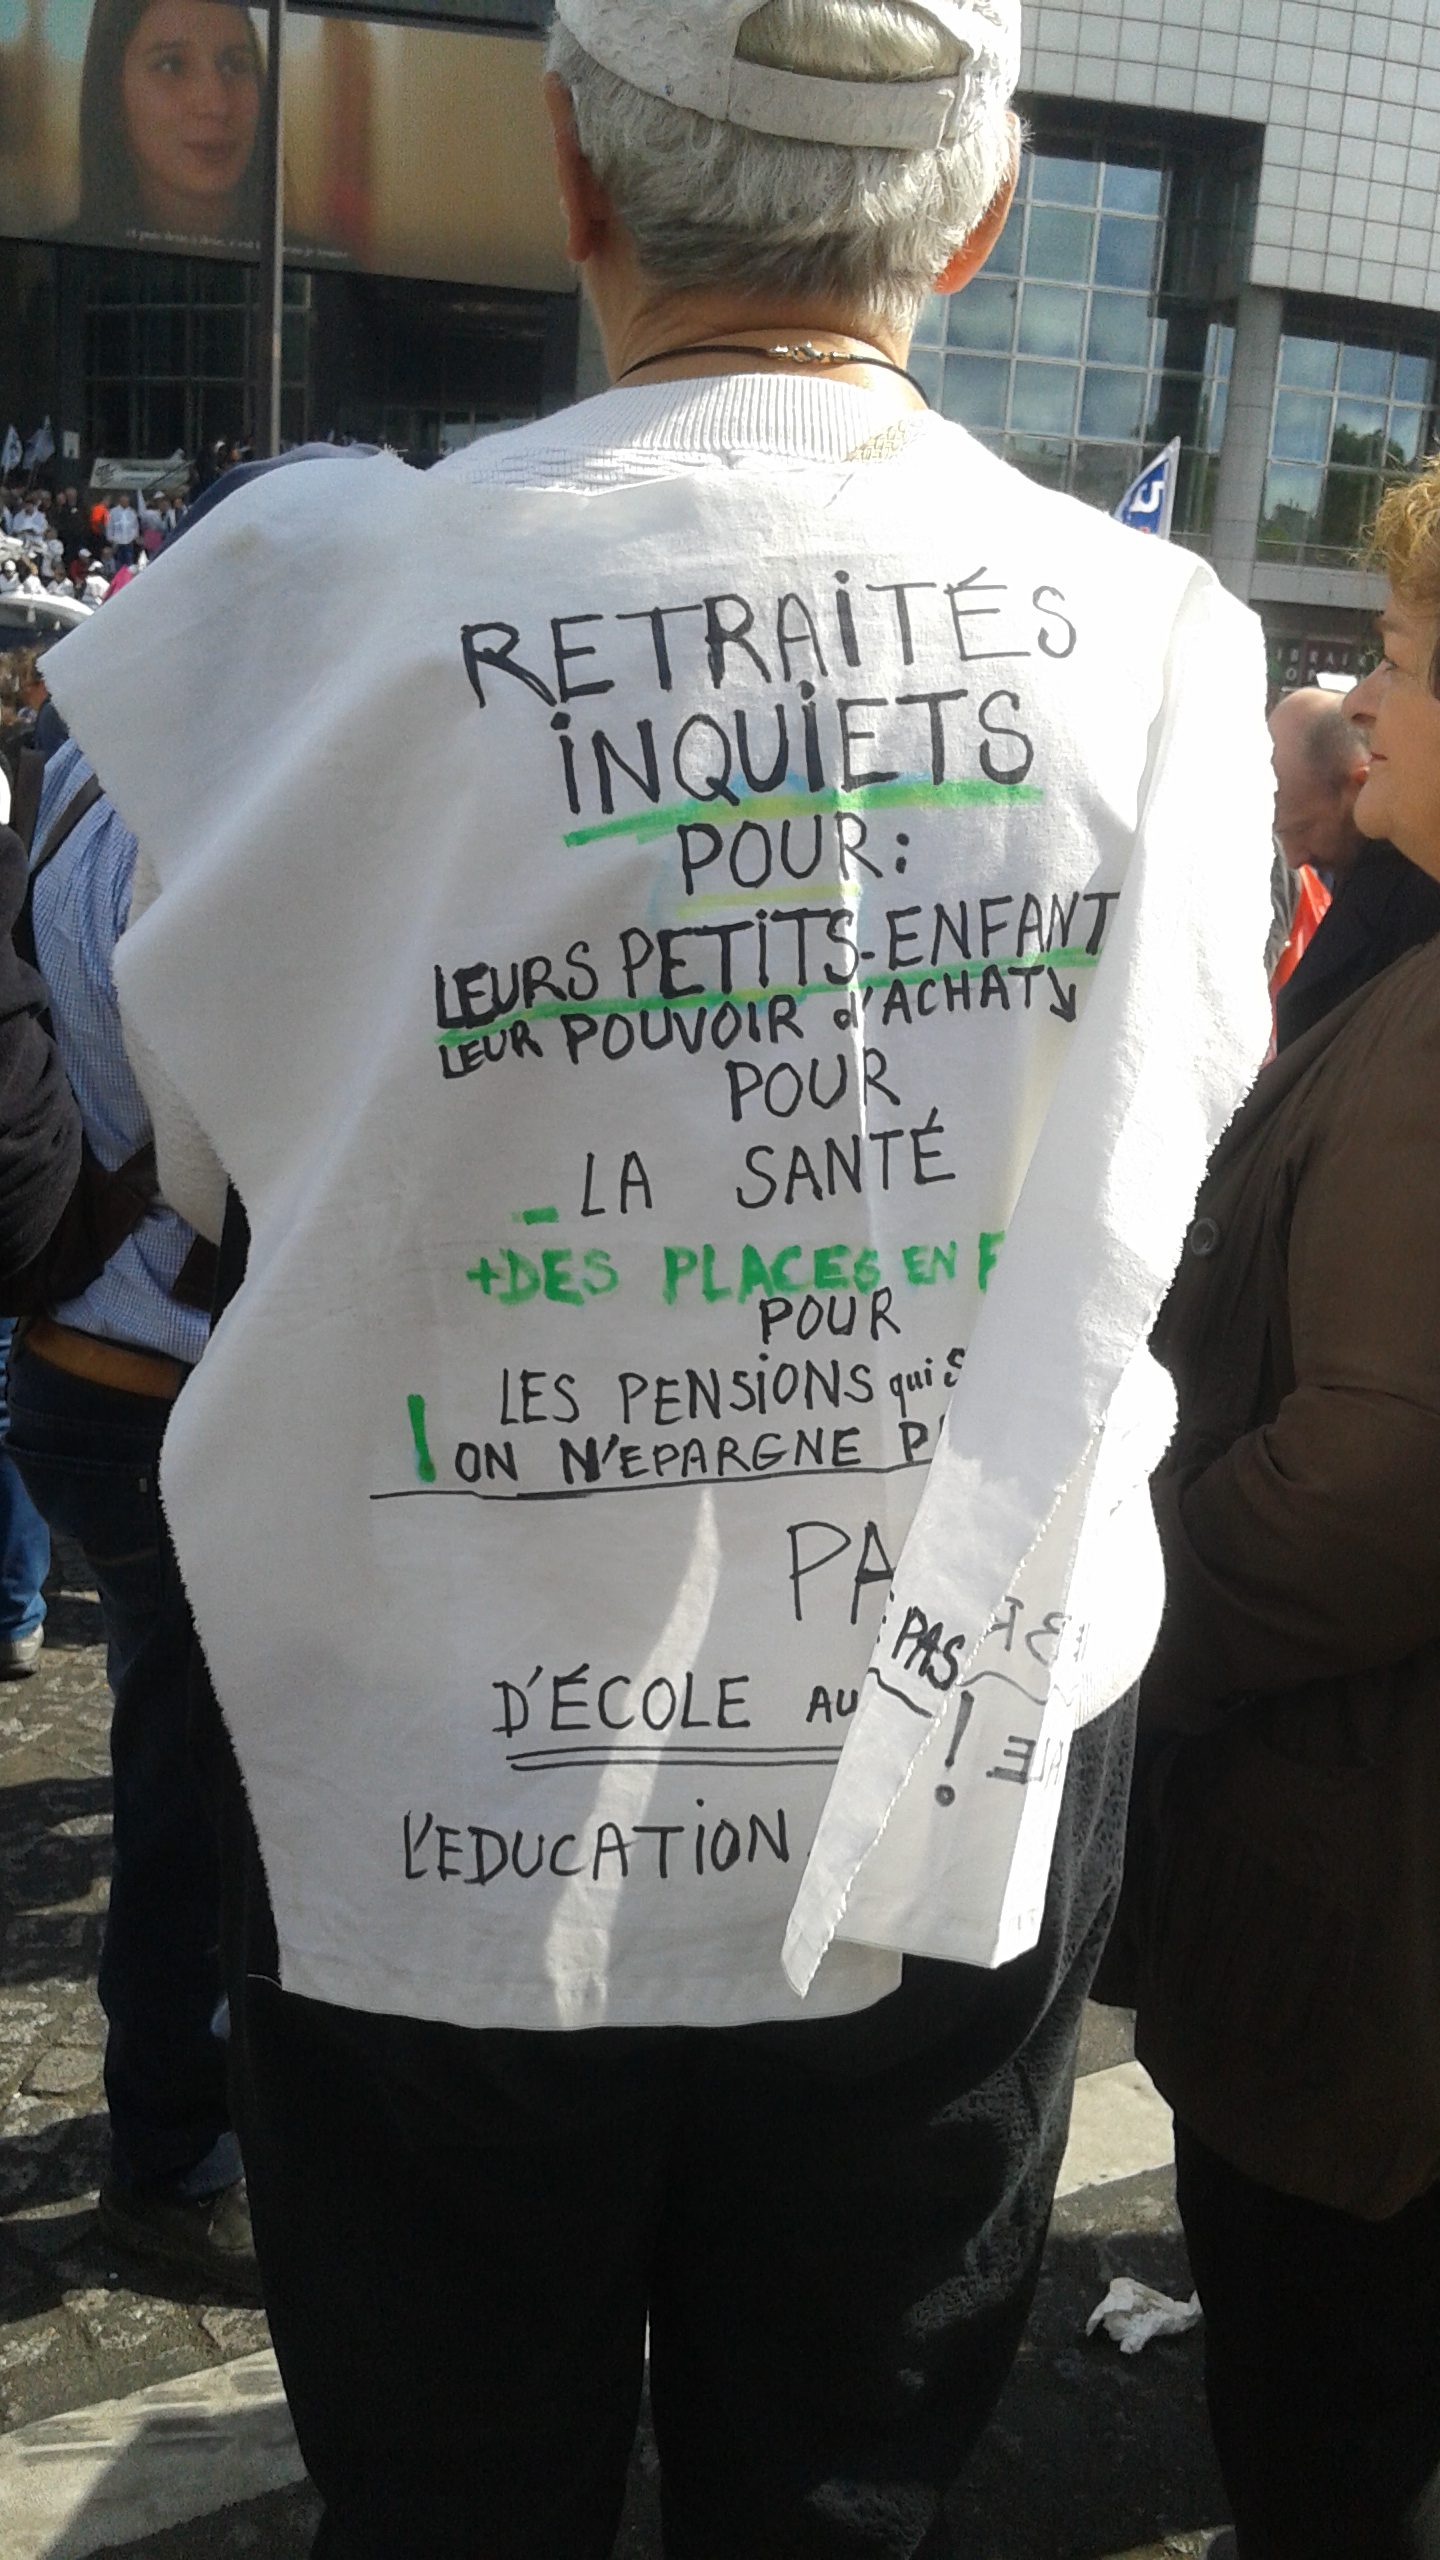 RETRAITÉS
INQUIETS
POUR:
LEURS PETITS-ENFANT
LEUR POUVOIR d'ACHAT↘
POUR
_ LA SANTÉ
+DES PLACES EN F
POUR
LES PENSIONS qui S
! ON N'EPARGNE P
PA
PAS
!
D'ÉCOLE AU
L'EDUCATION